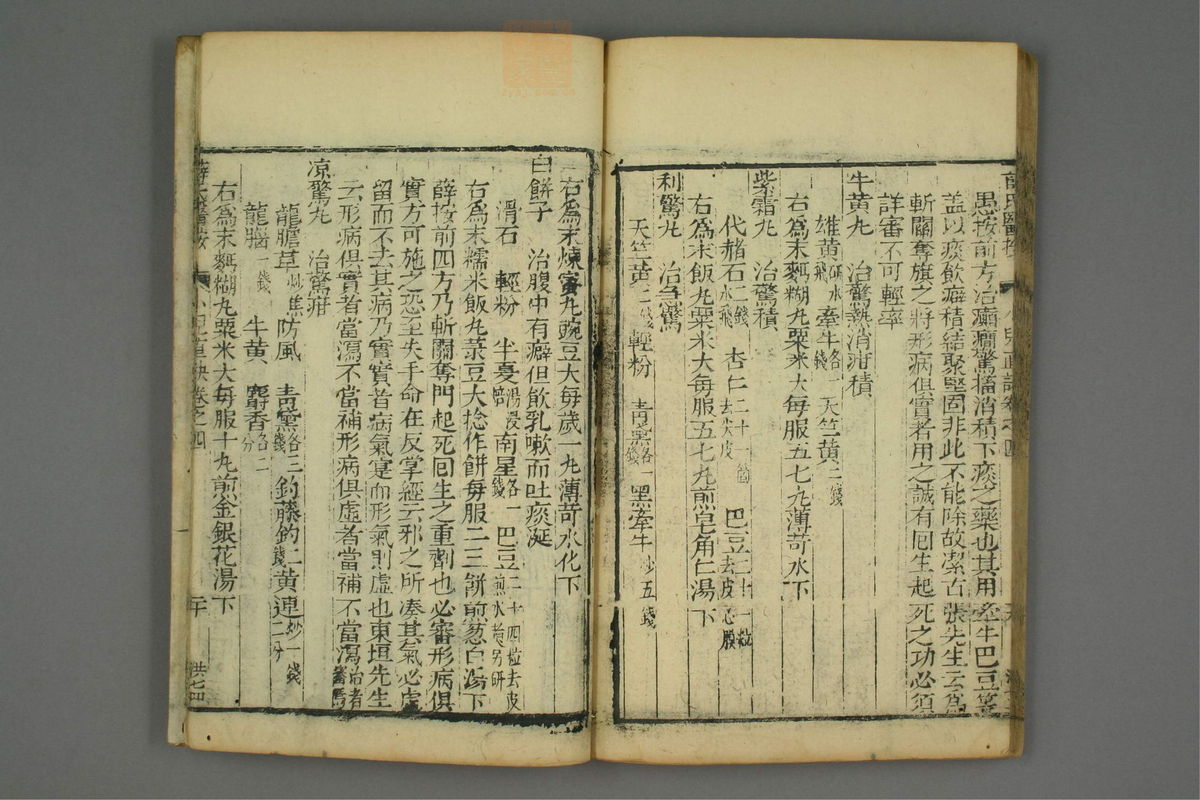 愚按前方治癲癇驚搐消積下痰之藥也其用牽牛巴豆等
蓋以痰飲癖積結聚堅固非此不能除故潔古張先生云為
斬關奪旗之將形病俱實者用之誠有囘生起死之功必須
詳審不可輕率
牛黃丸 治驚熱消疳積
雄黃研水飛 牽牛各一錢 天竺黃二錢
右為末麪糊丸粟米大每服五七丸薄苛水下
紫霜丸 治驚積
代赭石二錢水飛 杏仁二十一箇去尖皮 巴豆二十一粒去皮心膜
右為末飯丸粟米大每服五七丸煎皂角仁湯下
利驚丸 治急驚
天竺黃二錢 輕粉 青黛各一錢 黑牽牛炒五錢
右為末煉蜜丸豌豆大每歲一丸薄苛水化下
白餅子 治腹中有癖但飲乳嗽而吐痰涎
滑石 輕粉 半夏湯浸 南星各一錢 巴豆二十四粒去皮煎水黃另研
右為末糯米飯丸菉豆大捻作餅每服二三餅煎葱白湯下
薛按前四方乃斬關奪門起死囘生之重劑也必審形病俱
實方可施之恐至失手命在反掌經云邪之所湊其氣必虛
留而不去其病乃實實者病氣寔而形氣則虛也東垣先生
云形病俱實者當瀉不當補形病俱虛者當補不當瀉治者
凉驚丸 治驚疳
龍膽草炒焦 防風 青黛各三錢 釣藤鈎二錢 黃連炒一錢二分
龍腦一錢 牛黃 麝香各二分
右為末麪糊丸粟米大每服十丸煎金銀花湯下
薛氏醫按 卷之四 二十 洪七四